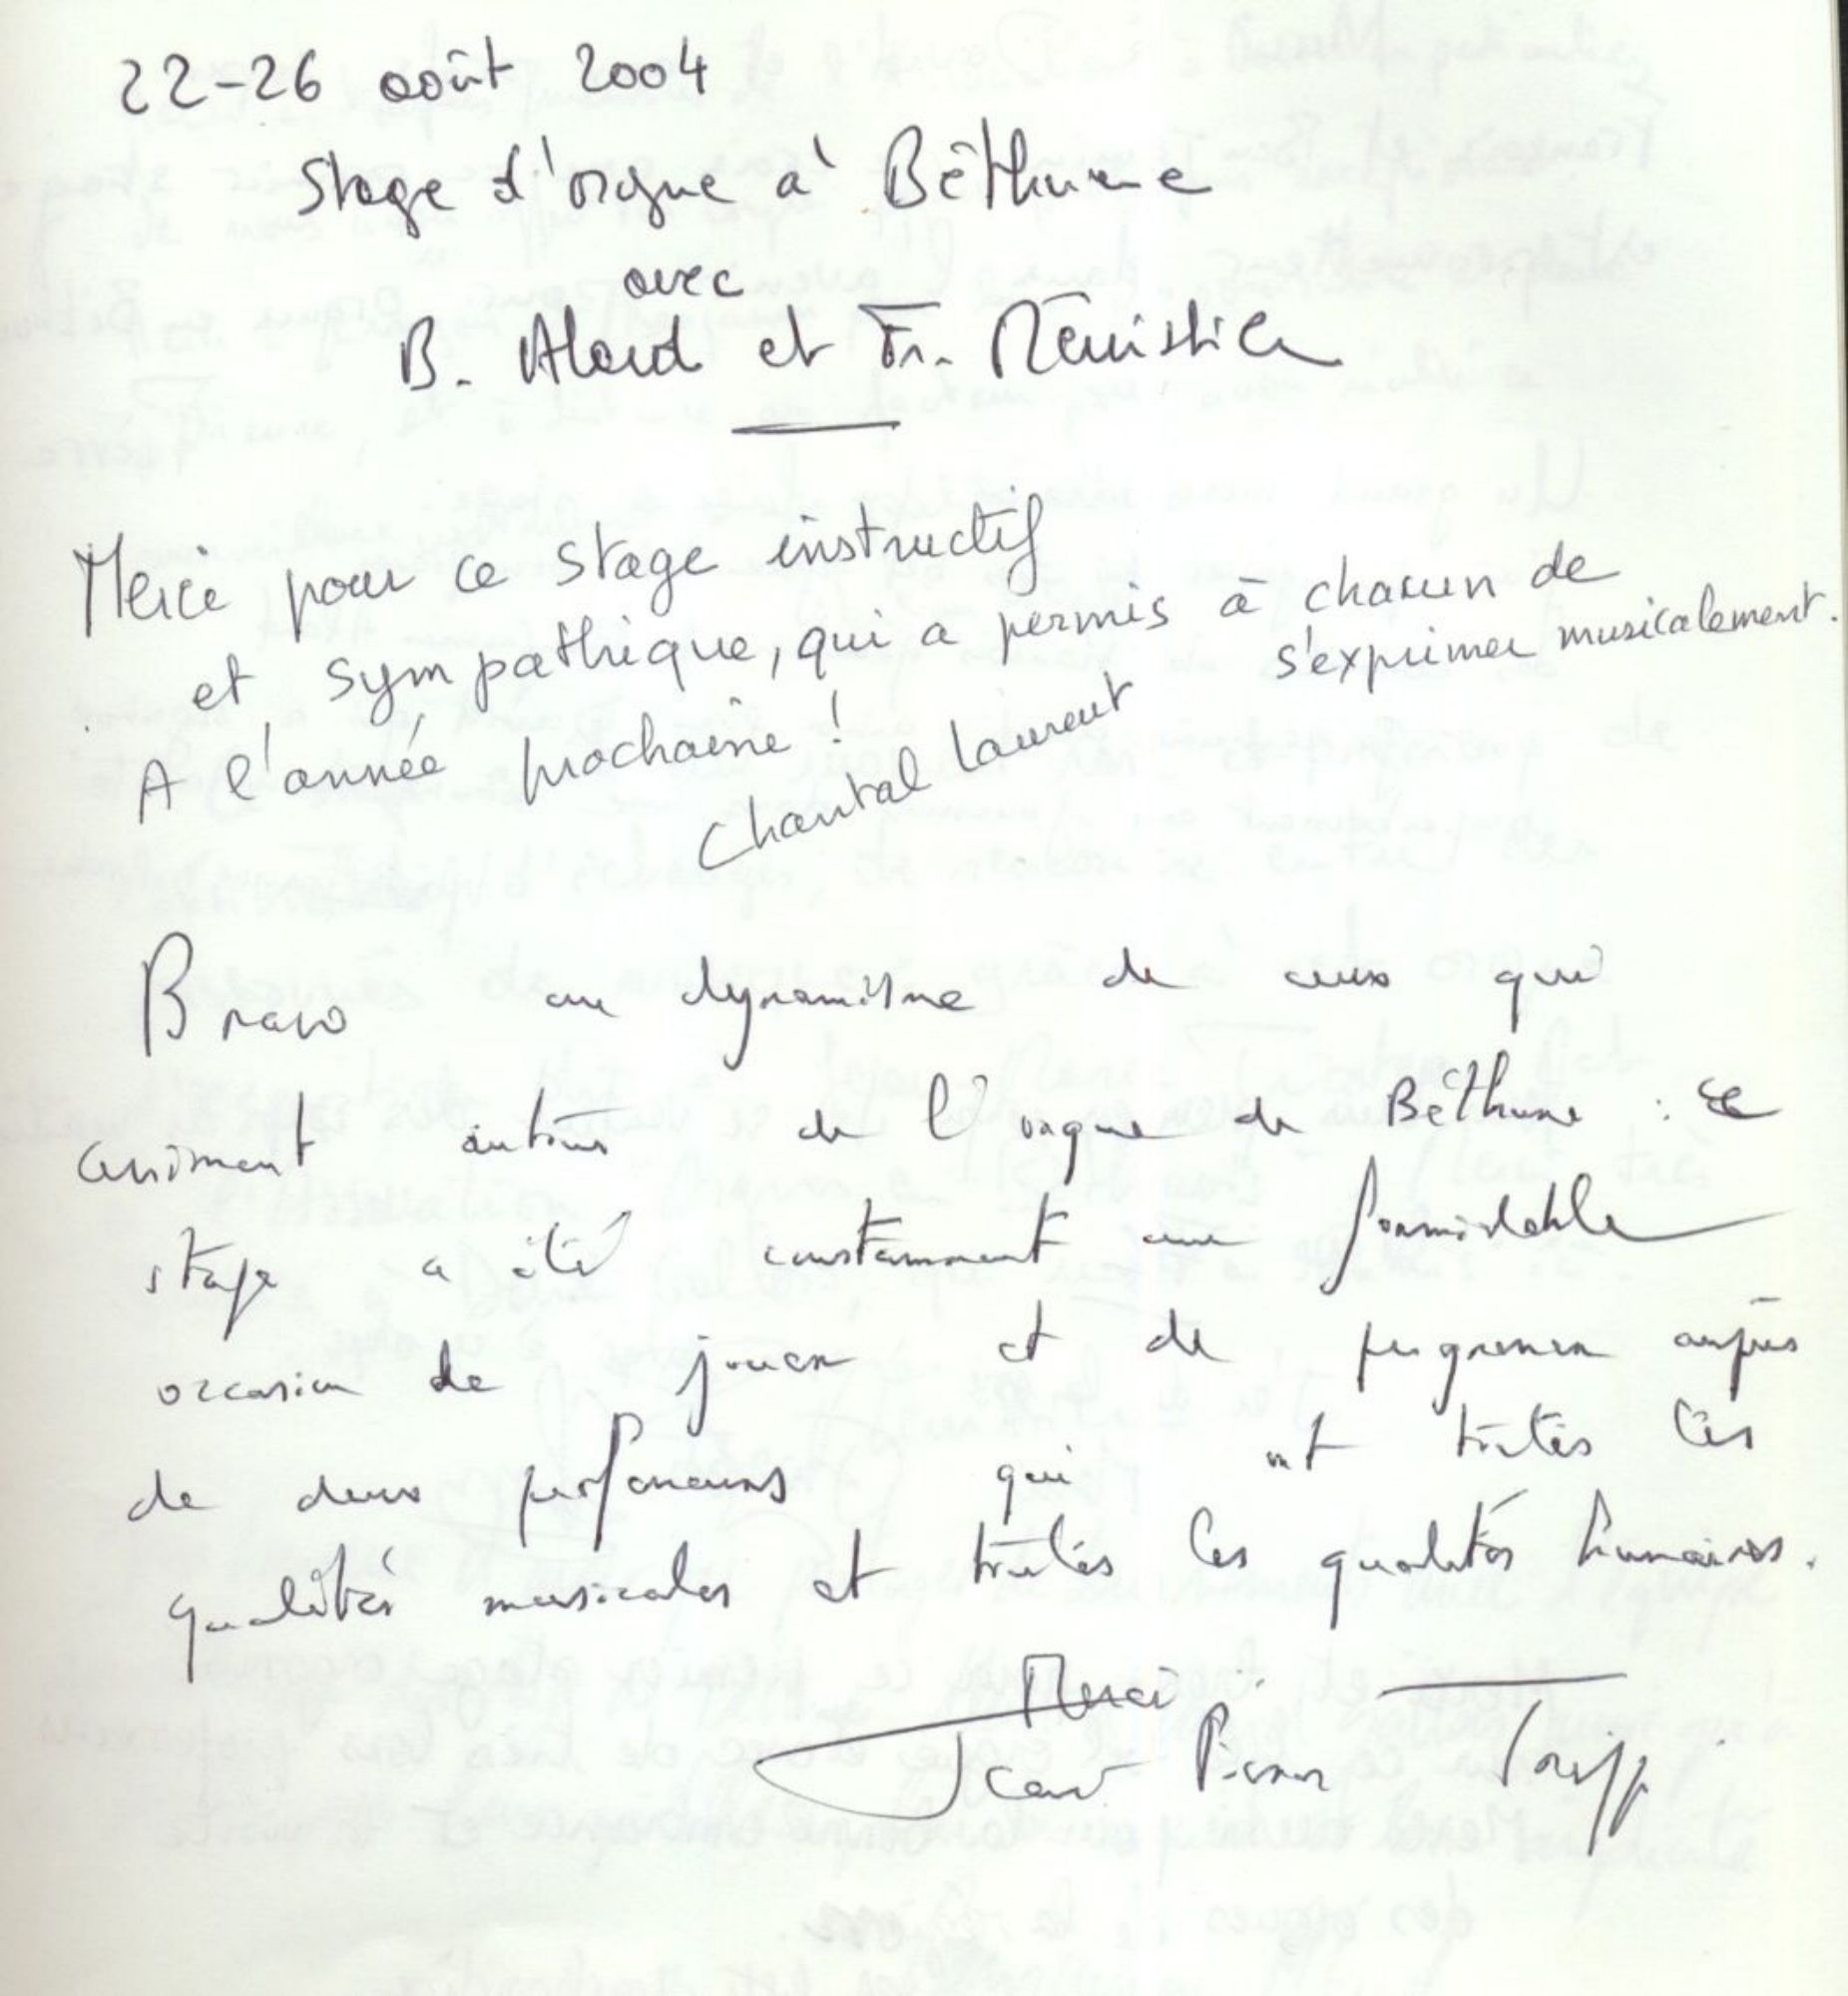 22-26 août 2004
Stage d'orgue à Béthune
avec
B. Alard et Fr. Ménissier
Merci pour ce stage instructif
et sympathique, qui a permis à chacun de
s'exprimer musicalement.
A l'année prochaine !
Chantal Laurent
Bravo au dynamisme de ceux qui
animent autour de l'orgue de Béthune : ce
stage a été constamment une formidable
occasion de jouer et de progresser auprès
de deux professeurs qui ont toutes les
qualités musicales et toutes les qualités humaines.
Merci
Jean Pierre